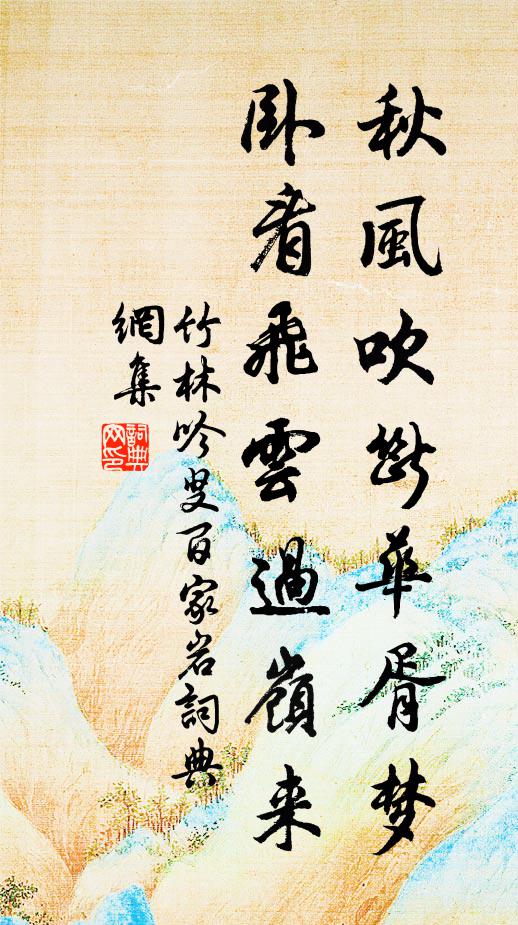 秋風吹斷華胥梦
卧看飛雲過嶺来
竹林吟叟百家岩詞典
網集
詞典
网印